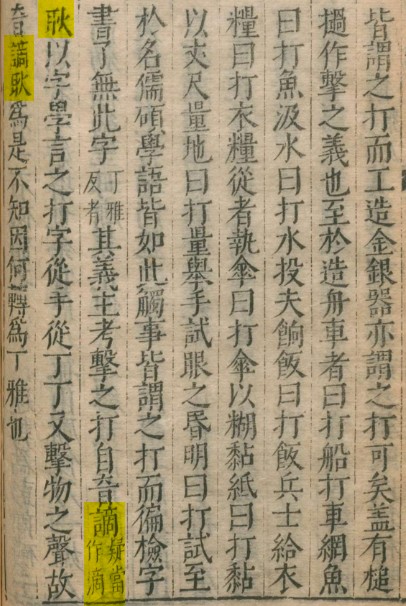 皆謂之打而工造金銀器亦謂之打可矣盖有槌
撾作擊之義也至於造舟車者曰打船打車網魚
曰打魚汲水曰打水投夫餉飯曰打飯兵士給衣
糧曰打衣糧從者執傘曰打傘以糊黏紙曰打黏
以丈尺量地曰打量舉手試眼之昬明曰打試至
於名儒碩學語皆如此觸事皆謂之打而徧檢字
書了無此字丁雅反者其義主考擊之打自音謫疑當作滴
耿以字學言之打字從手從丁丁又擊物之聲故
音謫耿爲是不知因何轉爲丁雅也